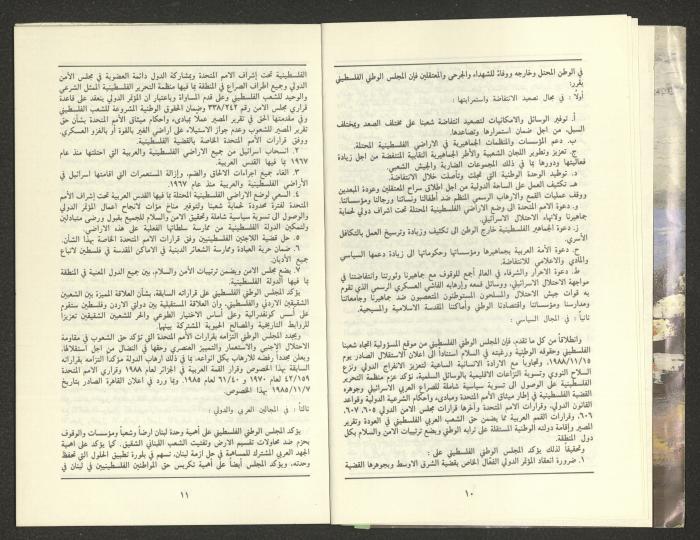 في الوطن المحتل وخارجه ووفاءً للشهداء والجرحى والمعتقلين فإن المجلس الوطني الفلسطيني
يقرر:
أولاً : في مجال تصعيد الانتفاضة واستمرارها :
أ. توفير الوسائل والامكانيات لتصعيد انتفاضة شعبنا على مختلف الصعد وبمختلف
السبل، من اجل ضمان استمرارها وتصاعدها.
ب. دعم المؤسسات والمنظمات الجماهيرية في الاراضي الفلسطينية المحتلة.
ج. تعزيز وتطوير اللجان الشعبية والأطر الجماهيرية النقابية المنتفضة من اجل زيادة
فعاليتها ودورها بما في ذلك المجموعات الضاربة والجيش الشعبي.
د. توطيد الوحدة الوطنية التي تجلت وتأصلت خلال الانتفاضة.
هـ. تكثيف العمل على الساحة الدولية من اجل اطلاق سراح المعتقلين وعودة المبعدين
ووقف عمليات القمع والارهاب الرسمي المنظم ضد أطفالنا ونسائنا ورجالنا ومؤسساتنا.
و. دعوة الامم المتحدة الى وضع الاراضي الفلسطينية المحتلة تحت اشراف دولي لحماية
جماهيرنا ولانهاء الاحتلال الاسرائيلي.
ز. دعوة الجماهير الفلسطينية خارج الوطن الى تكثيف وزيادة وترسيخ العمل بالتكافل
الأسري.
ح. دعوة الأمة العربية بجماهيرها ومؤسساتها وحكوماتها الى زيادة دعمها السياسي
والمادي والاعلامي للانتفاضة.
ط. دعوة الاحرار والشرفاء في العالم أجمع للوقوف مع جماهيرنا وثورتنا وانتفاضتنا في
مواجهة الاحتلال الاسرائيلي، ووسائل قمعه وإرهابه الفاشي العسكري الرسمي الذي تقوم
به قوات جيش الاحتلال والمسلحون المستوطنون المتعصبون ضد جماهيرنا وجامعاتنا
ومدارسنا ومؤسساتنا واقتصادنا الوطني وأماكننا المقدسة الاسلامية والمسيحية.
ثانياً : في المجال السياسي :
وانطلاقاً من كل ما تقدم، فإن المجلس الوطني الفلسطيني من موقع المسؤولية اتجاه شعبنا
الفلسطيني وحقوقه الوطنية ورغبته في السلام استناداً الى اعلان الاستقلال الصادر يوم
١٩٨٨/١١/١٥، وتجاوباً مع الارادة الانسانية الساعية لتعزيز الانفراج الدولي ونزع
السلاح النووي وتسوية النزاعات الاقليمية بالوسائل السلمية، تؤكد عزم منظمة التحرير
الفلسطينية على الوصول الى تسوية سياسية شاملة للصراع العربي الاسرائيلي وجوهره
القضية الفلسطينية في إطار ميثاق الأمم المتحدة ومبادىء وأحكام الشرعية الدولية وقواعد
القانون الدولي، وقرارات الامم المتحدة وآخرها قرارات مجلس الامن الدولي ٦٠٥، ٦٠٧،
٦٠٨، وقرارات القمم العربية بما يضمن حق الشعب العربي الفلسطيني في العودة وتقرير
المصير وإقامة دولته الوطنية المستقلة على ترابه الوطني ويضع ترتيبات الامن والسلام بكل
دول المنطقة.
وتحقيقاً لذلك يؤكد المجلس الوطني الفلسطيني على :
١. ضرورة انعقاد المؤتمر الدولي الفعّال الخاص بقضية الشرق الاوسط وبجوهرها القضية
١٠
الفلسطينية تحت إشراف الامم المتحدة وبمشاركة الدول دائمة العضوية في مجلس الأمن
الدولي وجميع اطراف الصراع في المنطقة بما فيها منظمة التحرير الفلسطينية الممثل الشرعي
والوحيد للشعب الفلسطيني وعلى قدم المساواة وباعتبار ان المؤتمر الدولي ينعقد على قاعدة
قراري مجلس الامن رقم ٣٣٨/٢٤٢ وضمان الحقوق الوطنية المشروعة للشعب الفلسطيني
وفي مقدمتها الحق في تقرير المصير عملاً بمبادىء وأحكام ميثاق الأمم المتحدة بشأن حق
تقرير المصير للشعوب وعدم جواز الاستيلاء على اراضي الغير بالقوة أو بالغزو العسكري.
ووفق قرارات الأمم المتحدة الخاصة بالقضية الفلسطينية.
٢. انسحاب اسرائيل من جميع الاراضي الفلسطينية والعربية التي احتلتها منذ عام
١٩٦٧ بما فيها القدس العربية.
٣. الغاء جميع اجراءات الالحاق والضم، وإزالة المستعمرات التي اقامتها اسرائيل في
الأراضي الفلسطينية والعربية منذ عام ١٩٦٧.
٤. السعي لوضع الاراضي الفلسطينية المحتلة بما فيها القدس العربية تحت إشراف الأمم
المتحدة لفترة محدودة لحماية شعبنا ولتوفير مناخ مؤات لانجاح اعمال المؤتمر الدولي
والوصول الى تسوية سياسية شاملة وتحقيق الامن والسلام للجميع بقبول ورضى متبادلين
ولتمكين الدولة الفلسطينية من ممارسة سلطاتها الفعلية على هذه الاراضي.
٥. حل قضية اللاجئين الفلسطينيين وفق قرارات الامم المتحدة الخاصة بهذا الشأن.
٦. ضمان حرية العبادة وممارسة الشعائر الدينية في الاماكن المقدسة في فلسطين لاتباع
جميع الأديان.
٧. يضع مجلس الامن ويضمن ترتيبات الأمن والسلام، بين جميع الدول المعنية في المنطقة
بما فيها الدولة الفلسطينية.
يؤكد المجلس الوطني الفلسطيني على قراراته السابقة، بشأن العلاقة المميزة بين الشعبين
الشقيقين الاردني والفلسطيني، وأن العلاقة المستقبلية بين دولتي الاردن وفلسطين ستقوم
على أسس كونفدرالية وعلى أساس الاختيار الطوعي والحر للشعبين الشقيقين تعزيزاً
للروابط التاريخية والمصالح الحيوية المشتركة بينهما.
ويجدد المجلس الوطني التزامه بقرارات الأمم المتحدة التي تؤكد حق الشعوب في مقاومة
الاحتلال الاجنبي والاستعمار والتمييز العنصري وحقها في النضال من اجل استقلالها،
ويعلن مجدداً رفضه للارهاب بكل انواعه، بما في ذلك ارهاب الدولة مؤكداً التزامه بقراراته
السابقة بهذا الخصوص وقرار القمة العربية في الجزائر لعام ١٩٨٨ وقراري الامم المتحدة
٤٢/١٥٩ لعام ١٩٧٠ و ٦١/٤٠ لعام ١٩٨٥. وبما ورد في اعلان القاهرة الصادر بتاريخ
١٩٨٥/١١/٧ بهذا الخصوص.
ثالثاً : في المجالين العربي والدولي :
يؤكد المجلس الوطني الفلسطيني على أهمية وحدة لبنان ارضاً وشعباً ومؤسسات والوقوف
بحزم ضد محاولات تقسيم الارض وتفتيت الشعب اللبناني الشقيق. كما يؤكد على اهمية
الجهد العربي المشترك للمساهمة في حل ازمة لبنان، تسهم في بلورة تطبيق الحلول التي تحفظ
وحدته، ويؤكد المجلس أيضاً على أهمية تكريس حق المواطنين الفلسطينيين في لبنان في
١١